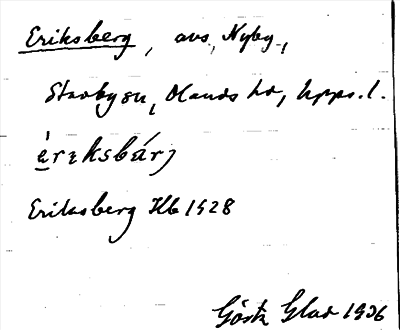 Eriksberg, avs, Nyby,
Stavby sn, Olands hd, Upps. l.
èrɩksbárj
Eriksberg Hb 1928
Gösta Glad 1936